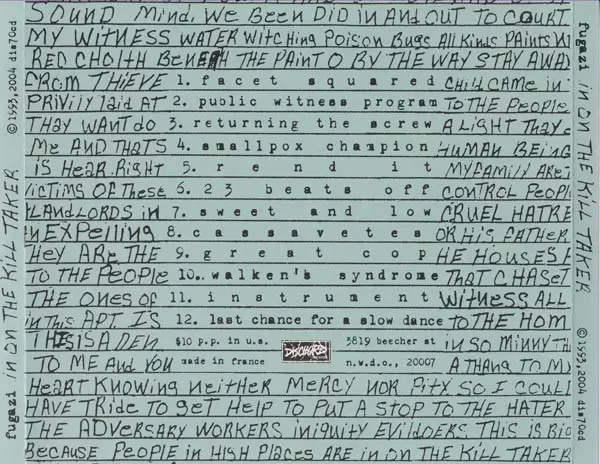 SOUND Mind. We Been DiD in And out To CourT
MY WiTNess WATer WiTching Poison Bugs All Kinds PAiNTs
ReD CHolTH BeneATH THe PAiNT O By THe WAY STAY AWAY
FROM THieve 1. facet squared CHilD CAMe in
PRiVilY lAiD AT 2. public witness program To THe PeoPle
THAy WANT Do 3. returning the screw A LigHT THAy
Me AND THATS 4. smallpox champion HUMAN BEING
is HeAR. RigHT 5. rend it MY FAMILY ARE
VicTiMS OF THese 6. 23 beats off CONTROL PEOPLE
LANDLORDS in 7. sweet and low CRUEL HATRE
in EXPelling 8. cassavetes OR His FATHER
THey ARe THe 9. great cop HE HOUSES
TO THE PeoPle 10. walken's syndrome THAT CHASeT
THE ONes OF 11. instrument WiTNess ALL
in THis APT. IS 12. last chance for a slow dance TO THE HOM
THIS IS A DeN $10 p.p. in u.s. DISCHORD 3819 beecher st in SO MiNNY TH
TO Me AnD YOU made in france n.w.d.c., 20007 A THANg TO MY
HeART KNOWing NeiTHeR MeRCY NOR PiTY SO I COULD
HAVE TRiDe TO geT HelP TO PUT A STOP TO THE HATER
THE ADVeRSARY WORKeRS iNiQUiTY EViLDOeRS THIS iS Big
BeCAUSe PeoPLe iN HigH PLACes ARe iN ON THE KiLL TAKER
fugazi in ON THE KiLL TAKER ©1993,2004 dis70cd
fugazi in ON THE KiLL TAKER ©1993,2004 dis70cd